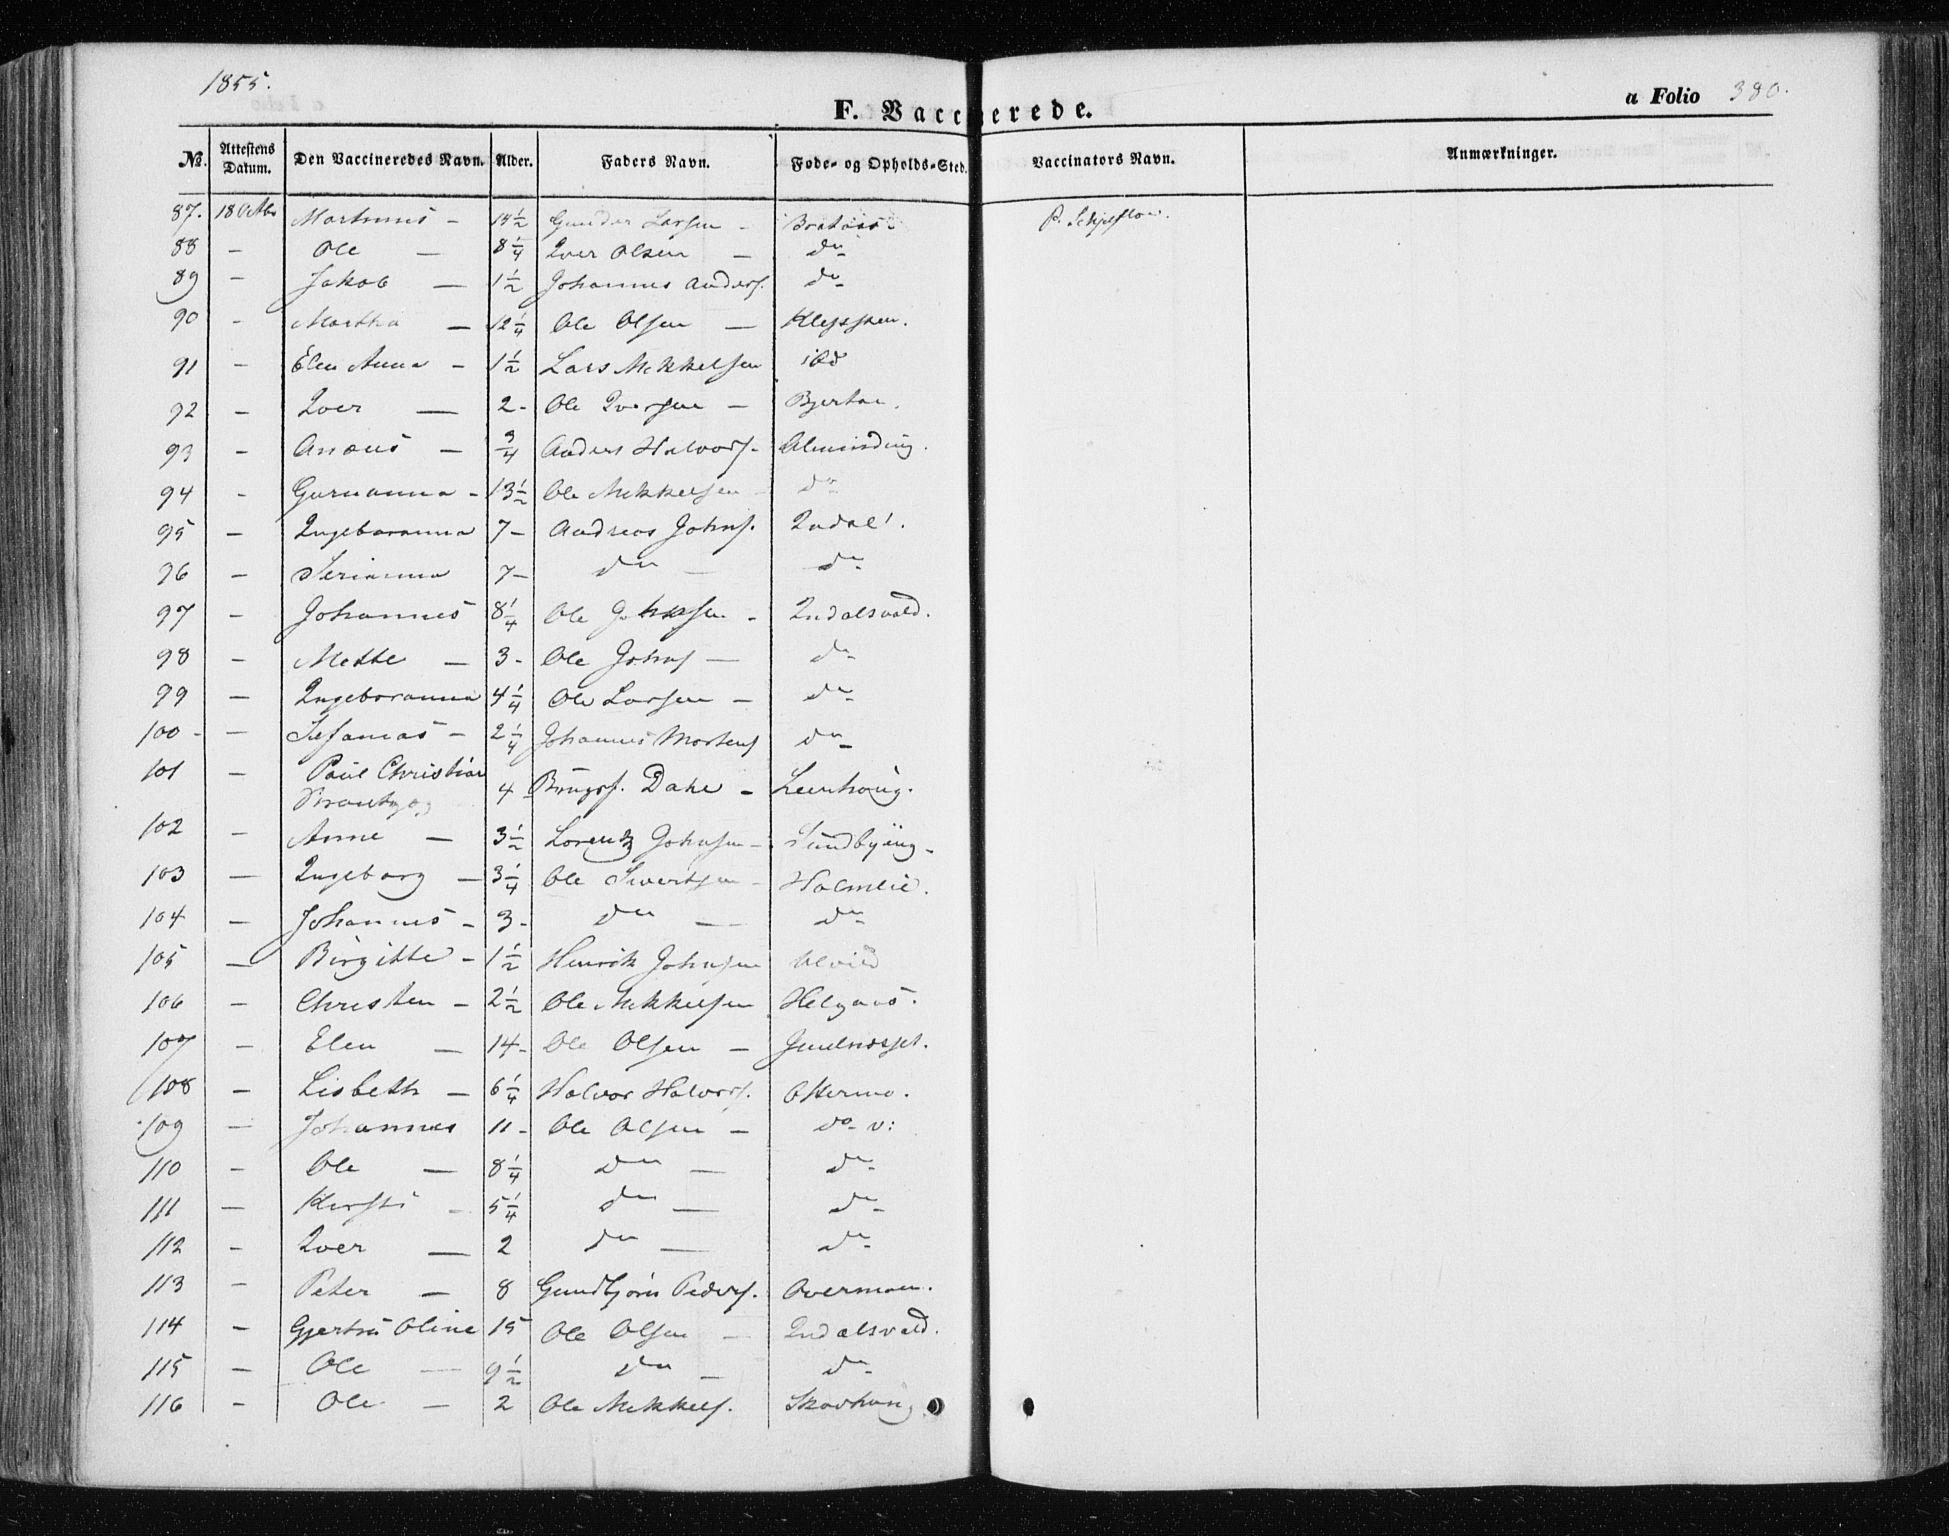 1855.
a Folio 380.
F. Vaccinerede.
No. Attestens Datum. Den Vaccineredes Navn. Alder. Faders Navn. Føde- og Opholds-Sted. Vaccinators Navn. Anmærkninger.
87. 18 Octbr Martinus - 14 1/2 Gunder Larsen -
88 - Ole - 8 1/4 Iver Olsen - do
89 - Jakob - 1 1/2 Johannes Anders. do
90 - Martha - 12 1/4 Ole Olsen - Kleppen.
91 - Elen Anna - 1 1/2 Lars Mekkelsen ibd
92 - Iver - 2 - Ole Iversen -
93 - Anæus - 3/4 Anders Halvors. - Alminding.
94 - Gurianna - 13 1/2 Ole Mekkelsen - do
95 - Ingeboranna 7 - Andreas Johns. Indal.
96 - Serianna 7 - do - do
97 - Johannes 8 1/4 Ole Johnsen - Indalsvald.
98 - Mette - 3 - Ole Johns - do
99 - Ingeboranna 4 1/4 Ole Larsen - do
100 - - Sefanias - 2 1/4 Johannes Mortens do
101 - Paul Christian
4 Brugsf. Dahl - Leerhoug.
102 - Anne - 3 1/2 Lorentz Johnsen - Sundbyeng -
103 - Ingeborg - 3 1/4 Ole Sivertsen - Holmlie.
104 - Johannes - 3 - do - do
105 - Birgitte - 1 1/2 Henrik Johnsen Ulvild
106 - Christen - 2 1/2 Ole Mekkelsen Helgaas.
107 - Elen - 14 - Ole Olsen -
108 - Lisbeth - 6 1/4 Halvor Halvors. Ottermo.
109 - Johannes 11 - Ole Olsen - do v:
110 - Ole - 8 1/4 do - do
111 - Kirsti - 5 1/4 do - do
112 - Iver - 2 do - do
113 - Peter - 8 Gundbjörn Peders. Overmoen.
114 - Gjertru Oline 15 Ole Olsen - Indalsvald.
115 - Ole - 9 1/2 do - do
116 - Ole - 2 Ole Mekkels. Skovhoug